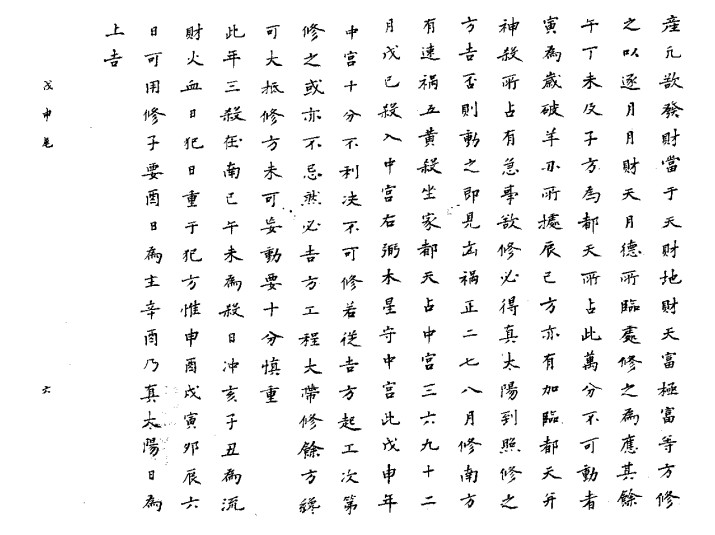 産凢欲發財當于天財地財天富極富等方修
之以逐月月財天月德所臨處修之為應其餘
午丁未及子方為都天所占此萬分不可動者
寅為歲破羊刃所據辰巳方亦有加臨都天并
神殺所占有急事欲修必得真太陽到照修之
方吉否則動之即見凶禍正二七八月修南方
有速禍五黃殺坐家都天占中宮三六九十二
月戊己殺入中宮右弼木星守中宮此戊申年
中宮十分不利决不可修若從吉方起工次第
修之或亦不忌然必吉方工程大帶修餘方纔
可大抵修方未可妄動要十分慎重
此年三殺在南巳午未為殺日冲亥子丑為流
財火血日犯日重于犯方惟申酉戌寅卯辰六
日可用修子要酉日為主辛酉乃真太陽日為
上吉
戊申年
六